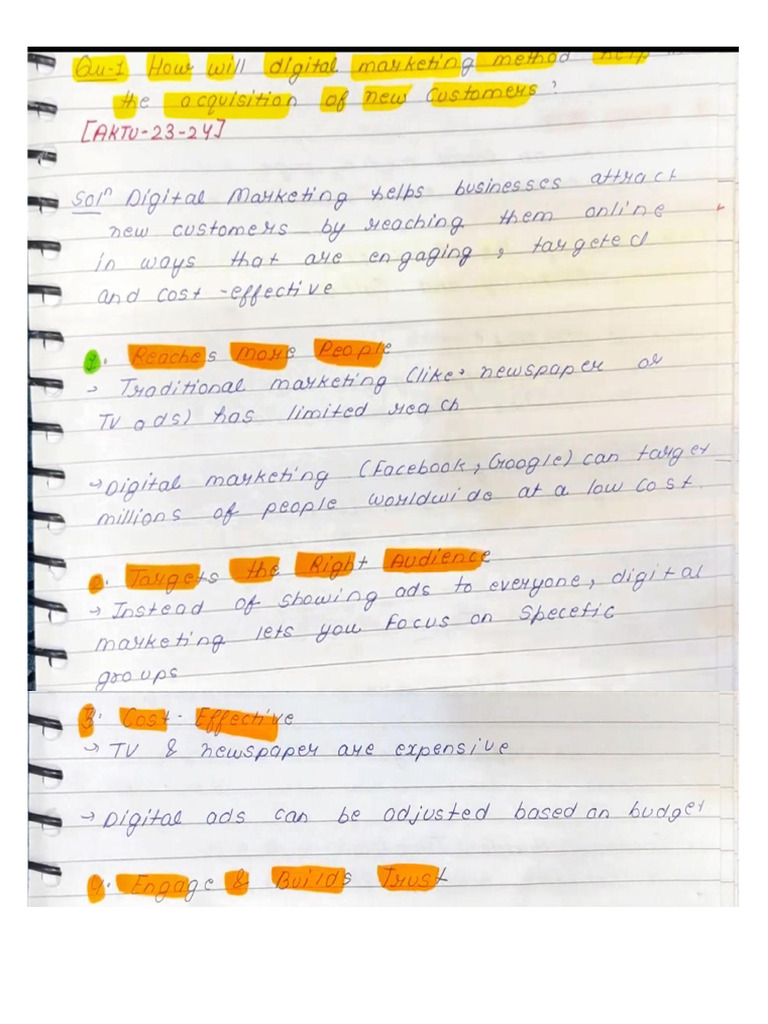 Qu-1 How will digital marketing method help in
the acquisition of new customers?
[AKTU-23-24]
Solⁿ Digital Marketing helps businesses attract
new customers by reaching them online
in ways that are engaging, targeted
and cost-effective
1. Reaches More People
→ Traditional marketing (like. newspaper or
TV ads) has limited reach
→ Digital marketing (Facebook, Google) can target
millions of people worldwide at a low cost.
2. Targets the Right Audience
→ Instead of showing ads to everyone, digital
marketing lets you focus on Specetic
groups
3. Cost-Effective
→ TV & newspaper are expensive
→ Digital ads can be adjusted based on budget
4. Engage & Builds Trust